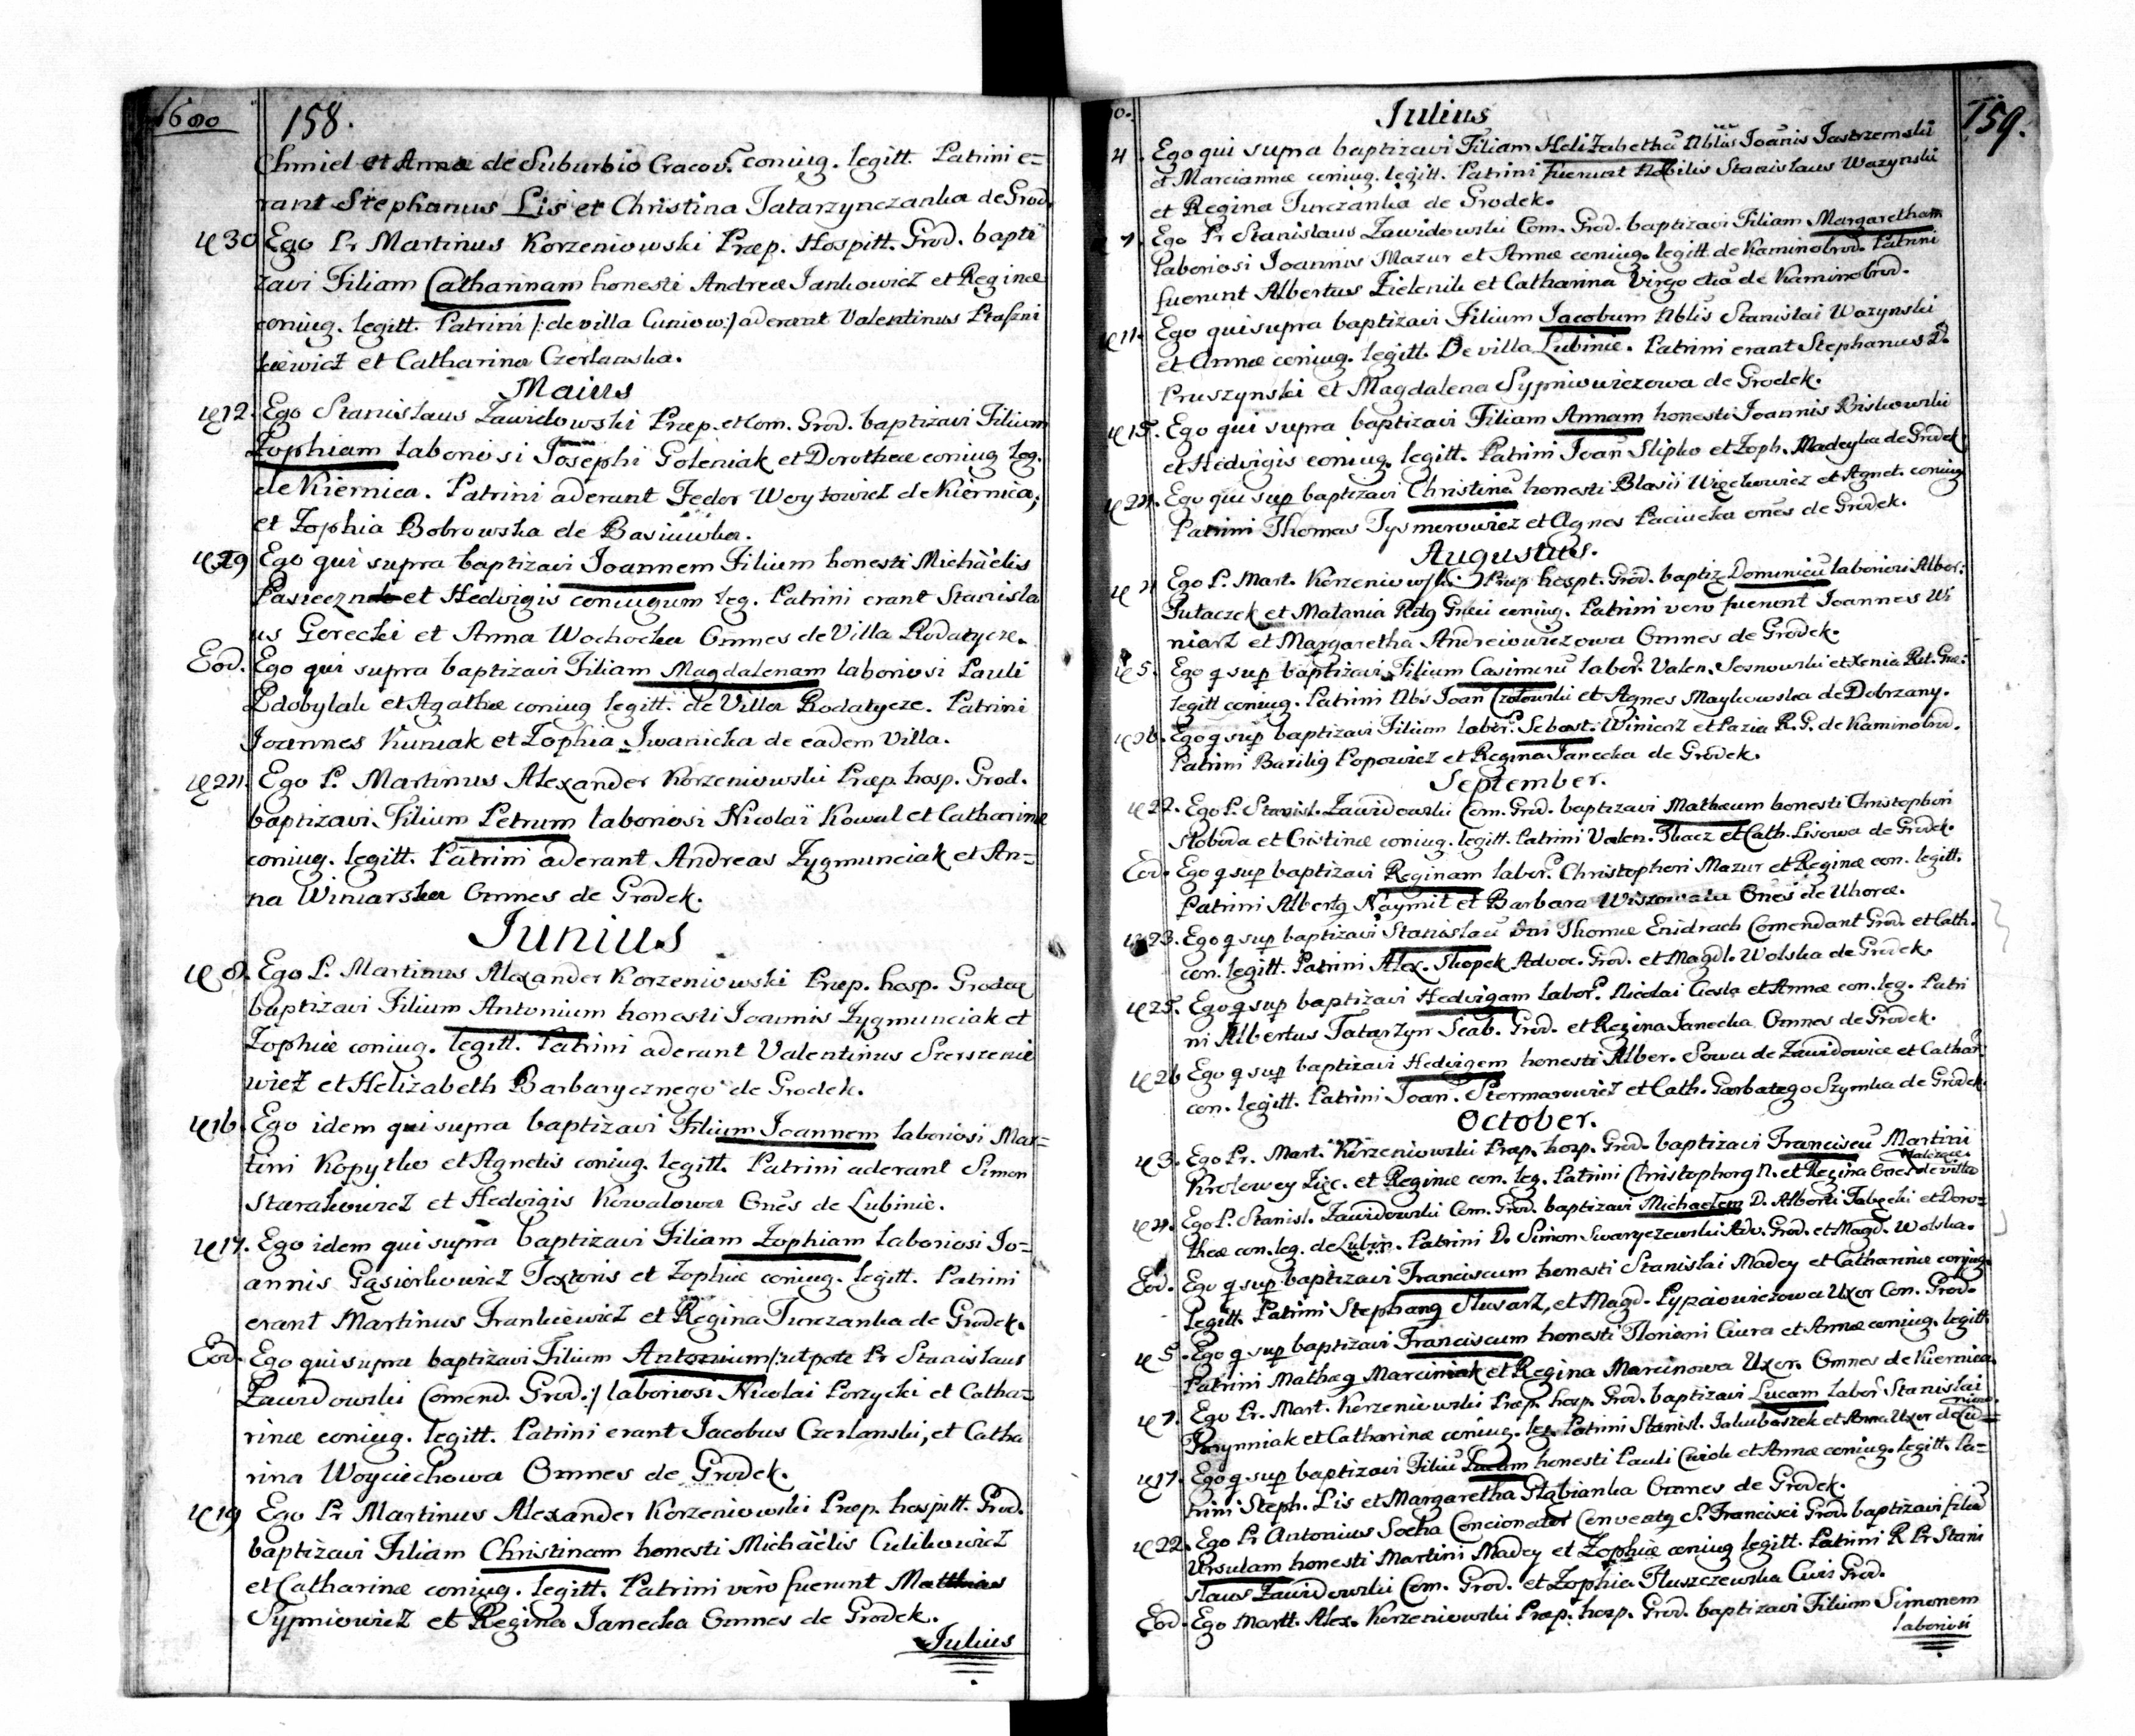 1680
158.
Chmiel et Annæ de Suburbio Cracov. coniug. legitt. Patrini e=
rant Stephanus Lis et Christina Tatarzynczanka de Grod.
30 Ego Pr Martinus Korzeniowski Præp. Hospitt. Grod. bapti
zavi Filiam Catharinam honesti Andreæ Jankowicz et Reginæ
coniug. legitt. Patrini /: de villa Cuniow :/ aderant Valentinus
kiewicz et Catharina Czerlanska.
Maius
12. Ego Stanislaus Zawidowski Præp. et Com. Grod. baptizavi Filium
Zophiam laboriosi Josephi Goleniak et Dorotheæ coniug. leg.
de Kiernica. Patrini aderant Fedor Woytowicz de Kiernica;
et Zophia Bobrowska de Basiuwka.
19 Ego qui supra baptizavi Joannem Filium honesti Michäelis
et Hedvigis coniugum leg. Patrini erant Stanisla
us Gorecki et Anna Wochocka Omnes de Villa Rodatycze.
Eod. Ego qui supra baptizavi Filiam Magdalenam laboriosi Pauli
Zdobylak et Agathæ coniug legitt. de Villa Rodatycze. Patrini
Joannes Kuniak et Zophia Jwanicka de eadem Villa.
24. Ego P. Martinus Alexander Korzeniowski Præp. hosp. Grod.
baptizavi Filium Petrum laboriosi Nicolai Kowal et Catharinæ
coniug. legitt. Patrini aderant Andreas Zygmunciak et An=
na Winiarska Omnes de Grodek.
Junius
8. Ego P. Martinus Alexander Korzeniowski Præp. hosp. Grodec
baptizavi Filium Antonium honesti Joannis Zygmunciak et
Zophiæ coniug. legitt. Patrini aderant Valentinus
wicz et Helizabeth Barbarycznego de Grodek.
16. Ego idem qui supra baptizavi Filium Joannem laboriosi Mar=
tini Kopytko et Agnetis coniug. legitt. Patrini aderant Simon
Starakowicz et Hedvigis Kowalowa Omēs de Lubinie.
17. Ego idem qui supra baptizavi Filiam Zophiam laboriosi Jo=
annis Gąsiorkowicz Textoris et Zophiæ coniug. legitt. Patrini
erant Martinus Frankiewicz et Regina Turczanka de Grodek.
Eod. Ego qui supra baptizavi Filium Antonium /: utpote Pr Stanislaus
Zawidowski Comend. Grod :/ laboriosi Nicolai Porzycki et Catha=
rinæ coniug. legitt. Patrini erant Jacobus Czerlanski, et Catha
rina Woyciechowa Omnes de Grodek.
19 Ego Pr Martinus Alexander Korzeniowski Præp. hospitt. Grod.
baptizavi Filiam Christinam honesti Michäelis Culikowicz
et Catharinæ coniug. legitt. Patrini vero fuerunt Matthias
Sypniowicz et Regina Janecka Omnes de Grodek.
Julius
Julius
159.
4. Ego qui supra baptizavi Filiam Helizabethā Nblis Joānis Jastrzemski
et Mariannæ coniug. legitt. Patrini fuerunt Nobilis Stanislaus Wazynski
et Regina Turczanka de Grodek.
7. Ego Pr Stanislaus Zawidowski Com. Grod. baptizavi Filiam Margaretham
laboriosi Joannis Mazur et Annæ coniug. legitt. de Kaminobrod. Patrini
fuerunt Albertus Zielenik et Catharina Virgo de Kaminobrod.
11. Ego qui supra baptizavi Filium Jacobum Nblis Stanislai Wazynski
et Annæ coniug. legitt. De villa Lubinie. Patrini erant Stephanus D.
Pruszynski et Magdalena Sypniowiczowa de Grodek.
15. Ego qui supra baptizavi Filiam Annam honesti Joannis Biskowski
et Hedvigis coniug. legitt. Patrini Joan Slipko et Zoph. Madeyka de Grodek
24. Ego qui sup baptizavi Christinā honesti Blasii Więckowicz et Agnet. coniug
Patrini Thomas Tysmerowicz et Agnes Paciucka omēs de Grodek.
Augustus.
4 Ego P. Mart. Korzeniowski Præp hospt. Grod. baptiz Dominicū laboriosi Alber:
Pułaczek et Malania Ritg Græci coniug. Patrini vero fuerunt Joannes Wi
niarz et Margaretha Andreiowiczowa Omnes de Grodek.
5. Ego q sup baptizavi Filium Casimerū labor. Valen. Sosnowski et Xenia Rit. Græ:
legitt coniug. Patrini Nbs Joan Czołowski et Agnes Maykowska de Dobrzany.
26. Ego q sup baptizavi Filium labor. Sebast. Winiarz et Pazia R. G. de Kaminobrod.
Patrini Bazilig Popowicz et Regina Janecka de Grodek.
September.
22. Ego P. Stanisl. Zawidowski Com. Grod. baptizavi Mathæum honesti Christophori
Słoboda et Cristinæ coniug. legitt. Patrini Valen. Tkacz et Cath. Lisowa de Grodek.
Eod. Ego q sup baptizavi Reginam labor. Christopheri Mazur et Reginæ con. legitt.
Patrini Albertg Naymit et Barbara Omēs de Uhorce.
23. Ego q sup baptizavi Stanislaū Dni Thomæ Enidrach Comendant Grod. et Cath.
con. legitt. Patrini Alex. Skopek Advoc. Grod. et Magdl. Wolska de Grodek.
25. Ego q sup baptizavi Hedvigam labor. Nicolai Ciesla et Annæ con. leg. Patri
ni Albertus Tatarzyn Scab. Grod. et Regina Janecka Omnes de Grodek.
26 Ego q sup baptizavi Hedvigem honesti Alber. Sowa de Zawidowice et Cathar.
con. legitt. Patrini Joan. et Cath. Garbatego Szymka de Grodek
October.
3. Ego Pr. Mart. Korzeniowski Præp. hosp. Grod. baptizavi Franciscū Martini
Krolowey Zięc. et Reginæ con. leg. Patrini Christophorg N. et Regina Omes de villa
4. Ego P. Stanisl. Zawidowski Com. Grod. baptizavi Michaelem D. Alberti Jabęcki et Doro=
theæ con. leg. de Lubin. Patrini D. Simon Swaryczewski Adv. Grod. et Magd. Wolska.
Eod. Ego q sup baptizavi Franciscum honesti Stanislai Madey et Catharinæ coniug.
legitt. Patrini Stephang Slusarz, et Magd. Uxor Con. Grod.
5. Ego q sup baptizavi Franciscum honesti Floriani Ciura et Annæ coniug. legitt.
Patrini Mathæg Marciniak et Regina Marcinowa Uxor. Omnes de Kiernica.
7. Ego Pr. Mart. Korzeniowski Præp. hosp. Grod. baptizavi Lucam labor Stanislai
et Catharinæ coniug. leg. Patrini Stanisl. Jakubaszek et Anna Uxor de Cu=
niow.
17. Ego q sup baptizavi Filiū Lucam honesti Pauli et Annæ coniug. legitt. Pa=
trini Steph. Lis et Margaretha Omnes de Grodek.
22. Ego Pr Antonius Socha Concionator Conventg S. Francisci Grod. baptizavi filiā
Ursulam honesti Martini Madey et Zophiæ coniug legitt. Patrini R Pr Stani
slaus Zawidowski Com. Grod. et Zophia Tłuszczewska Civis Grod.
Eod. Ego Martt. Alex. Korzeniowski Præp. hosp. Grod. baptizavi Filium Simonem
laboriosi